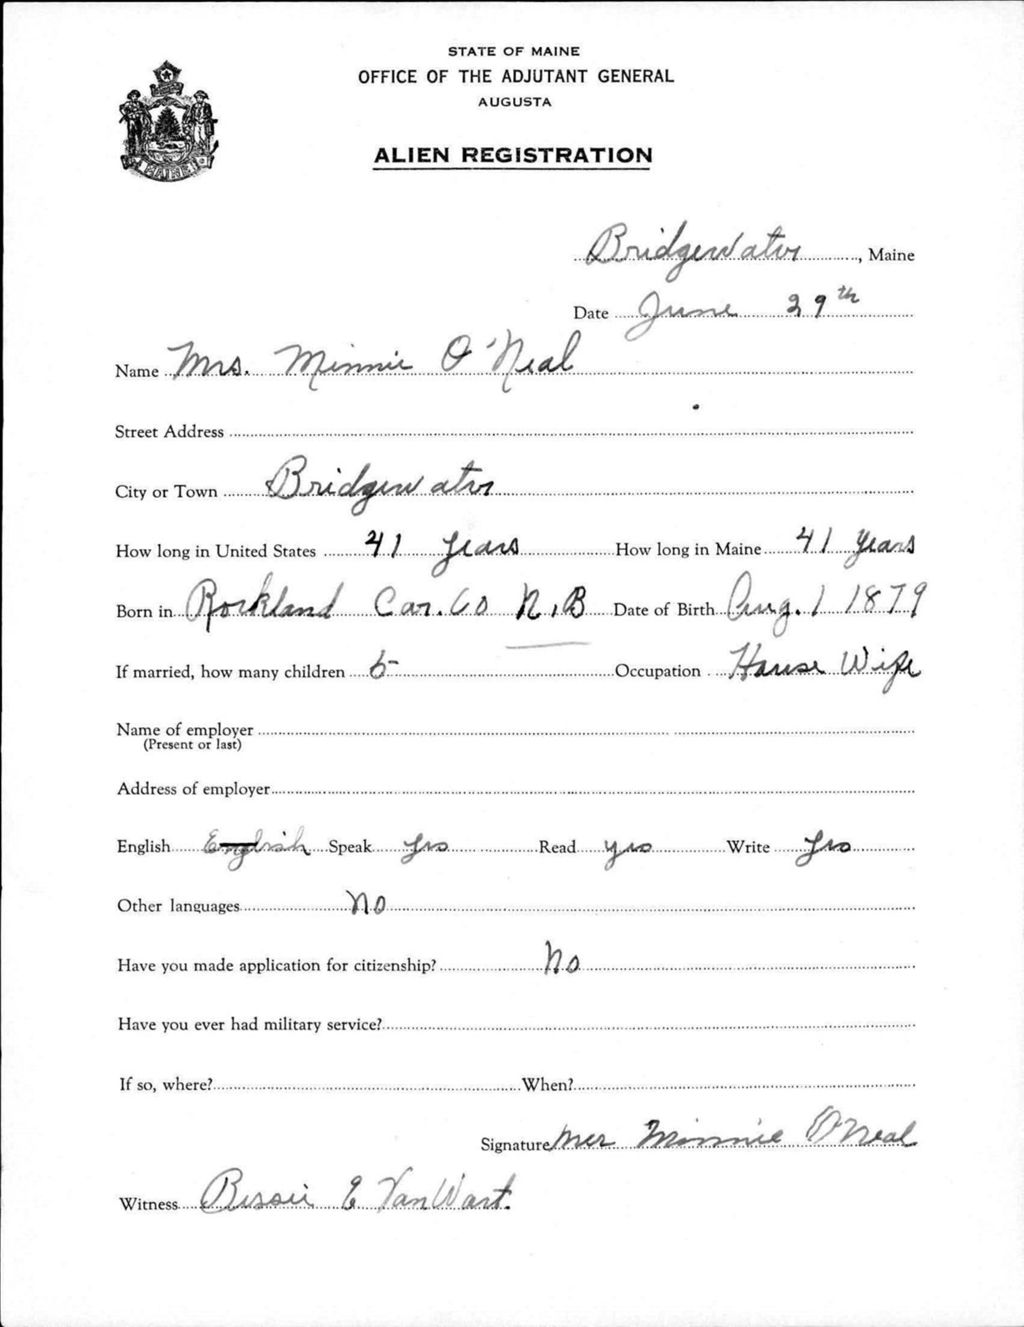 STATE OF MAINE
OFFICE OF THE ADJUTANT GENERAL
AUGUSTA
ALIEN REGISTRATION
MAINE
Bridgewater, Maine
Date June 29th
Name Mrs. Minnie O'Neal
Street Address
City or Town Bridgewater
How long in United States 41 years How long in Maine 41 years
Born in Rockland Car. Co N.B Date of Birth Aug. 1 1879
If married, how many children 5 Occupation House Wife
Name of employer
(Present or last)
Address of employer
English English Speak yes Read yes Write yes
Other languages No
Have you made application for citizenship? No
Have you ever had military service?
If so, where? When?
Signature Mrs Minnie O'Neal
Witness Bessie E VanWart.